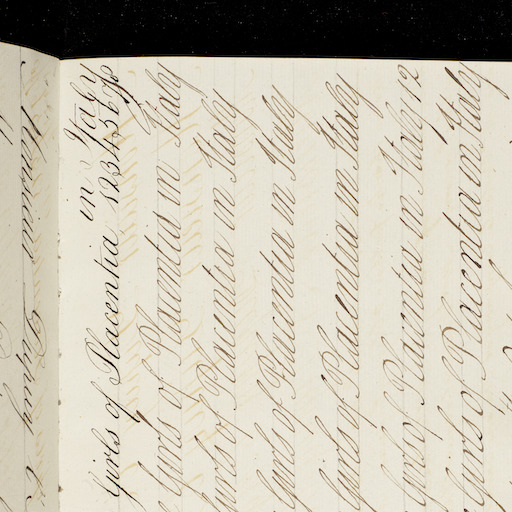 girls of Placentia in Italy
12345678
Girls of Placentia in Italy
Girls of Placentia in Italy
Girls of Placentia in Italy
Girls of Placentia in Italy
Girls of Placentia in Italy 12
Girls of Placentia in Italy